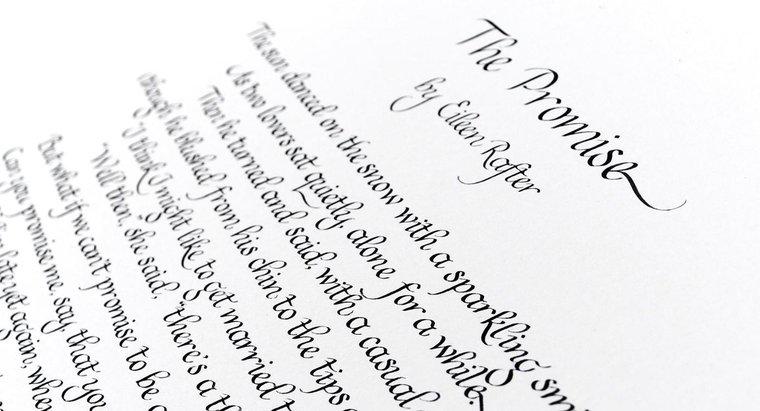 The Promise
by Eileen Rafter
The sun danced on the snow with a sparkling
As two lovers sat quietly, alone for a while.
Then he turned and said, with a casual
though he blushed from his chin to the tips
"I think I might like to get married
"Well then, she said, "there's a
But what if we can't promise to be
Can you promise me, say, that you
late yet again,